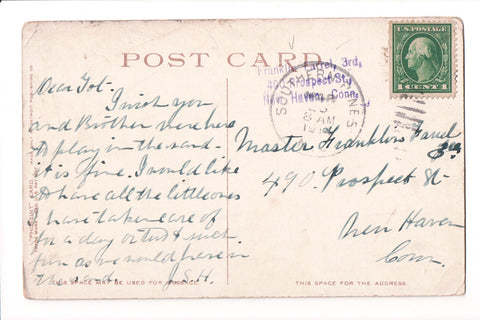 POST CARD
Franklin Farrel, 3rd,
490 Prospect St.,
New Haven, Conn.
SOUTHERN PINES
AM
U.S. POSTAGE
1 CENT 1
Dear Tot-
I wish you
and Brother were here
to play in the sand-
it is fine. I would like
to have all the little ones
I have taken care of
for a day or two & such
fun as we would have in
the sand. J.S.H.
Master Franklin Farrel
3rd
490 Prospect St-
New Haven
Conn.
THIS SPACE MAY BE USED FOR MESSAGE.
THIS SPACE FOR THE ADDRESS.